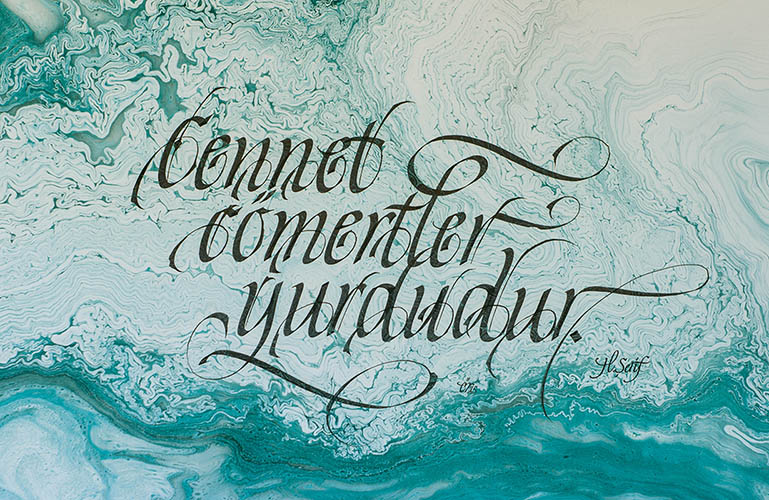 Cennet
cömertler
yurdudur.
H. Şerif